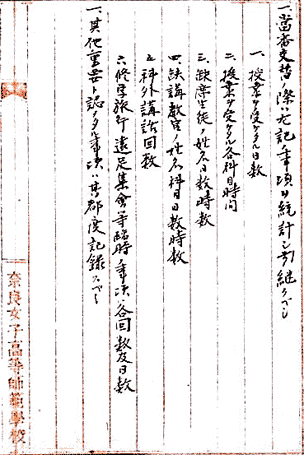 一、當番交替ノ際ハ左記事項ヲ統計シ引継クヘシ
一、授業ヲ受ケタル日数
二、授業ヲ受ケタル各科目時間
三、欠席生徒ノ姓名日数時数
四、欠講教官ノ姓名科目日数時数
五、科外講話回数
六、修学旅行遠足集会等臨時事項ハ各回数及日数
一、其他重要ト認メタル事項ハ其都度記録スヘシ
奈良女子高等師範學校